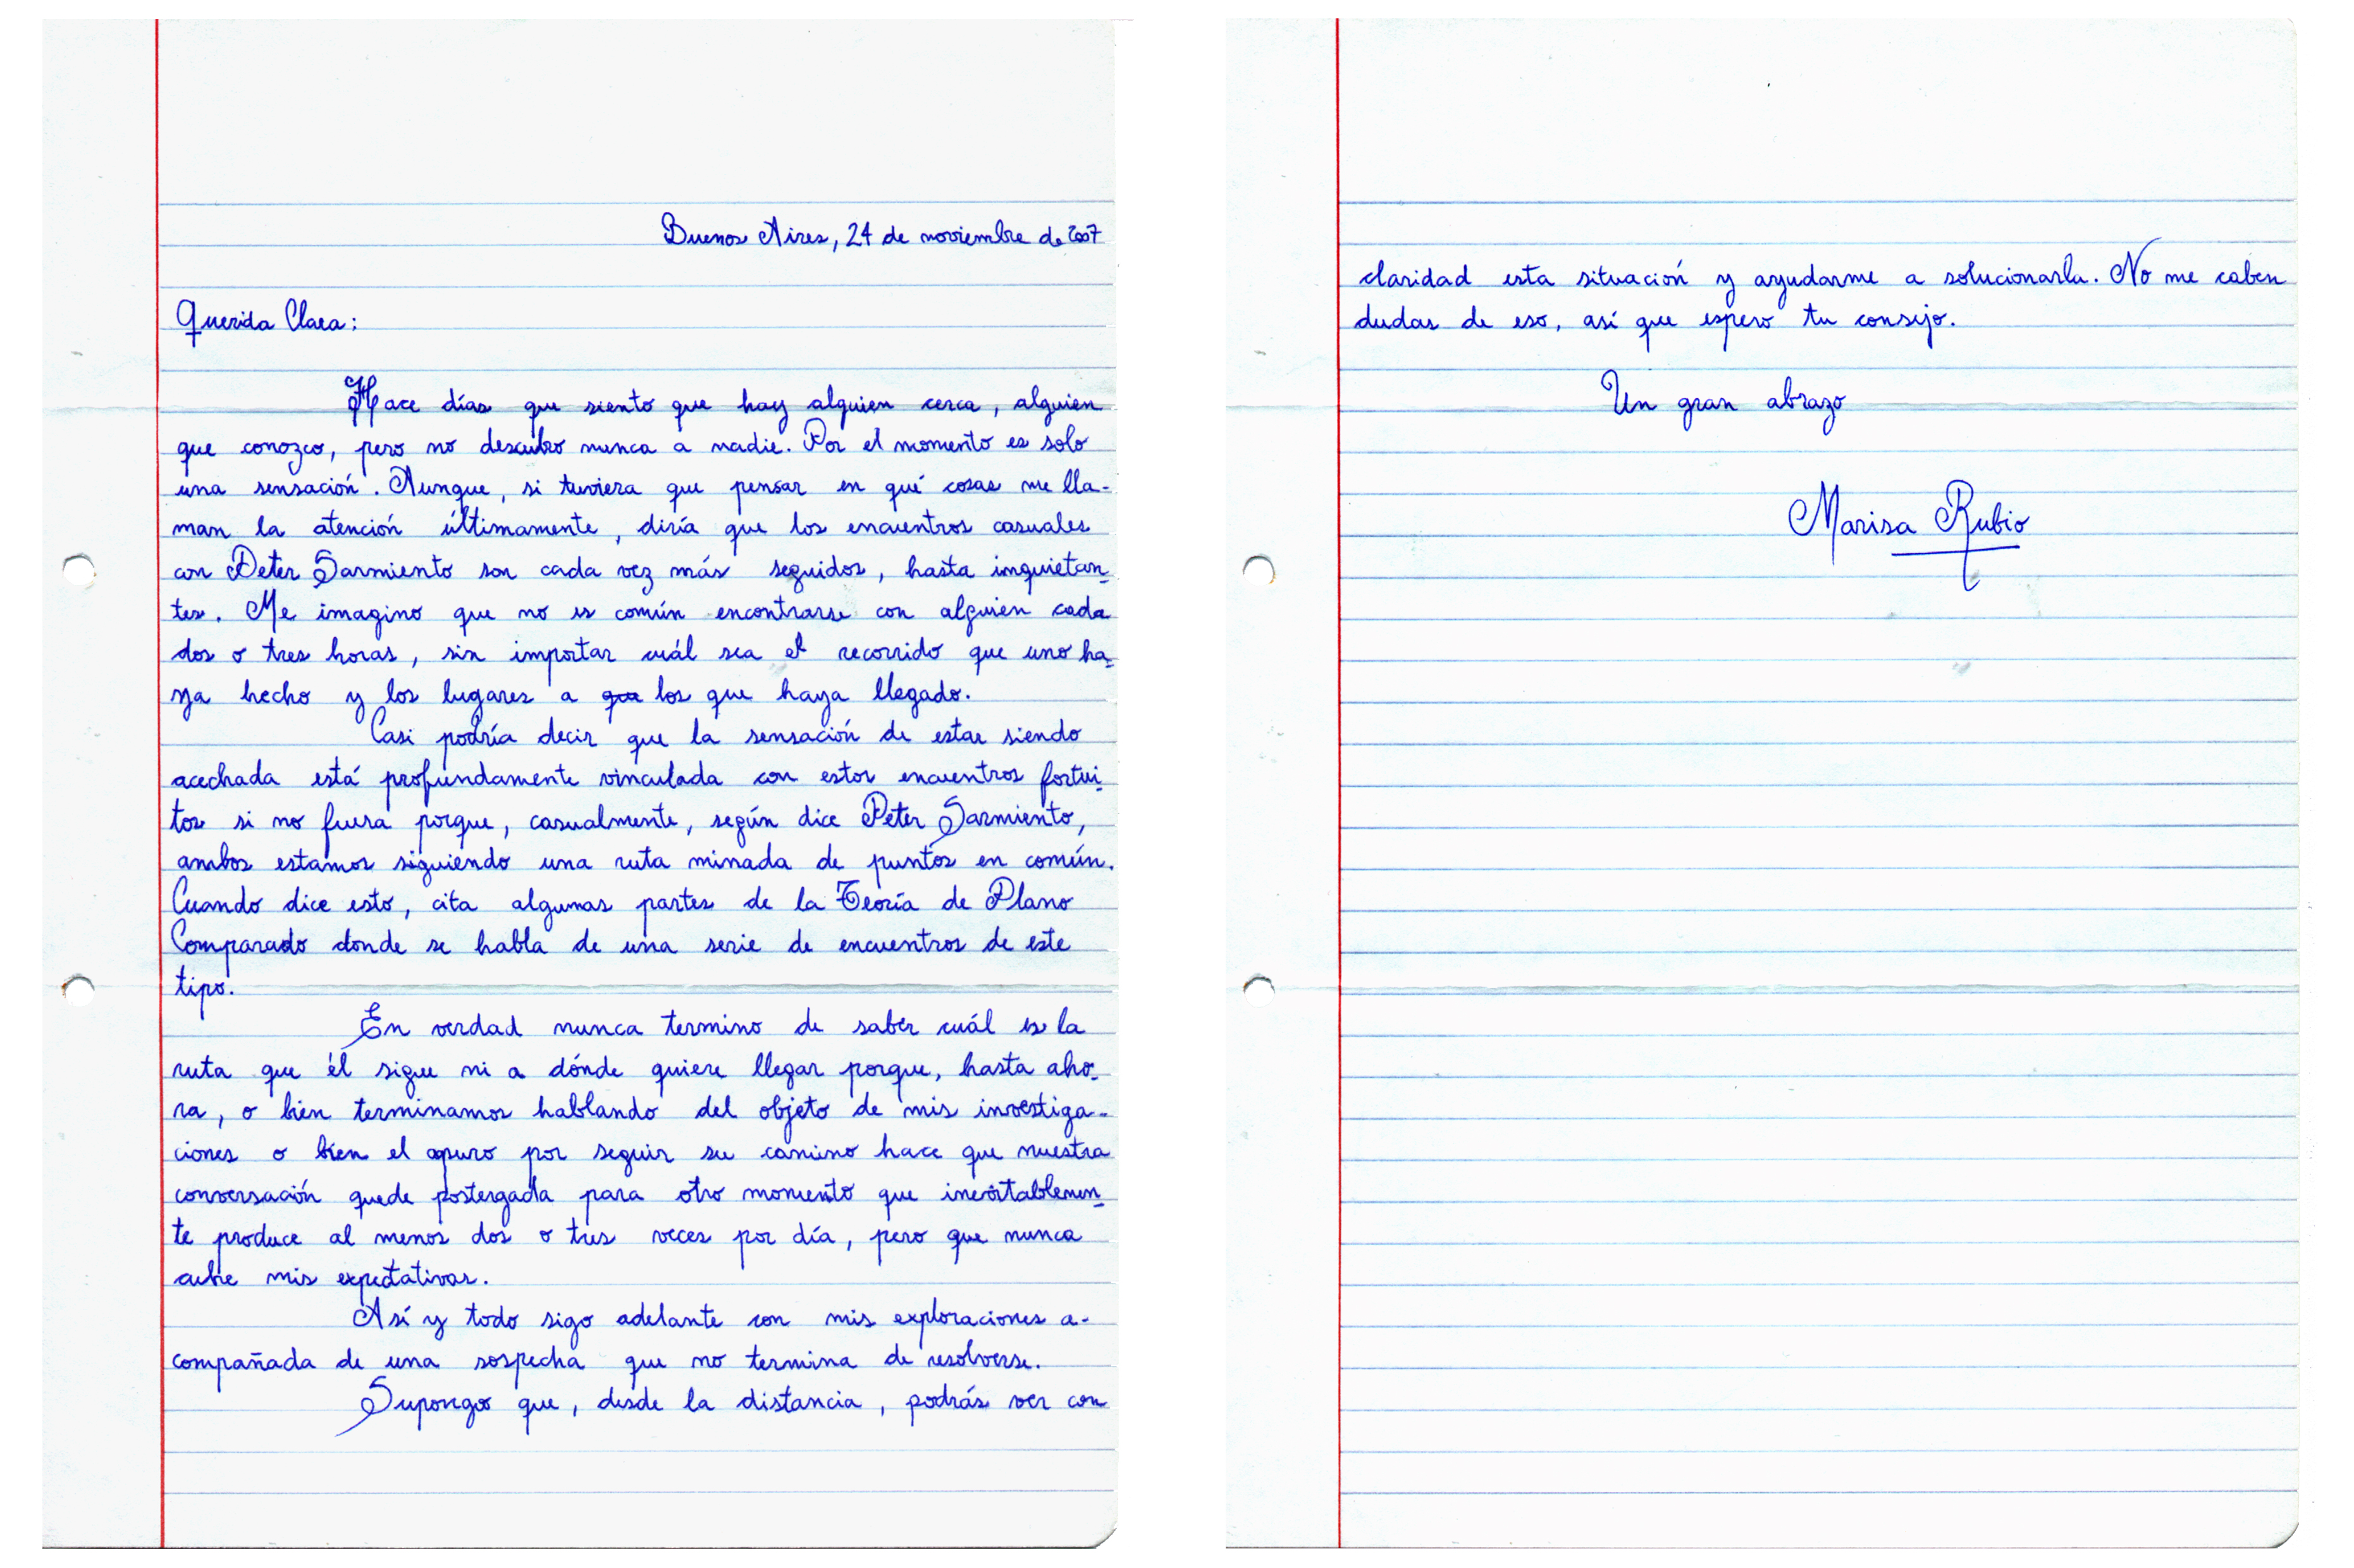 Buenos Aires, 24 de noviembre de 2007
Querida Clara:
Hace días que siento que hay alguien cerca, alguien
que conozco, pero no descubro nunca a nadie. Por el momento es solo
una sensación. Aunque, si tuviera que pensar en qué cosas me lla-
man la atención últimamente, diría que los encuentros casuales
con Peter Sarmiento son cada vez más seguidos, hasta inquietan-
tes. Me imagino que no es común encontrarse con alguien cada
dos o tres horas, sin importar cuál sea el recorrido que uno ha-
ya hecho y los lugares a que los que haya llegado.
Casi podría decir que la sensación de estar siendo
acechada está profundamente vinculada con estos encuentros fortui-
tos si no fuera porque, casualmente, según dice Peter Sarmiento,
ambos estamos siguiendo una ruta minada de puntos en común.
Cuando dice esto, cita algunas partes de la Teoría de Plano
Comparado donde se habla de una serie de encuentros de este
tipo.
En verdad nunca termino de saber cuál es la
ruta que él sigue ni a dónde quiere llegar porque, hasta aho-
ra, o bien terminamos hablando del objeto de mis investiga-
ciones o bien el apuro por seguir su camino hace que nuestra
conversación quede postergada para otro momento que inevitablemen-
te produce al menos dos o tres veces por día, pero que nunca
cubre mis expectativas.
Así y todo sigo adelante con mis exploraciones a-
compañada de una sospecha que no termina de resolverse.
Supongo que, desde la distancia, podrás ver con
claridad esta situación y ayudarme a solucionarla. No me caben
dudas de eso, así que espero tu consejo.
Un gran abrazo
Marisa Rubio